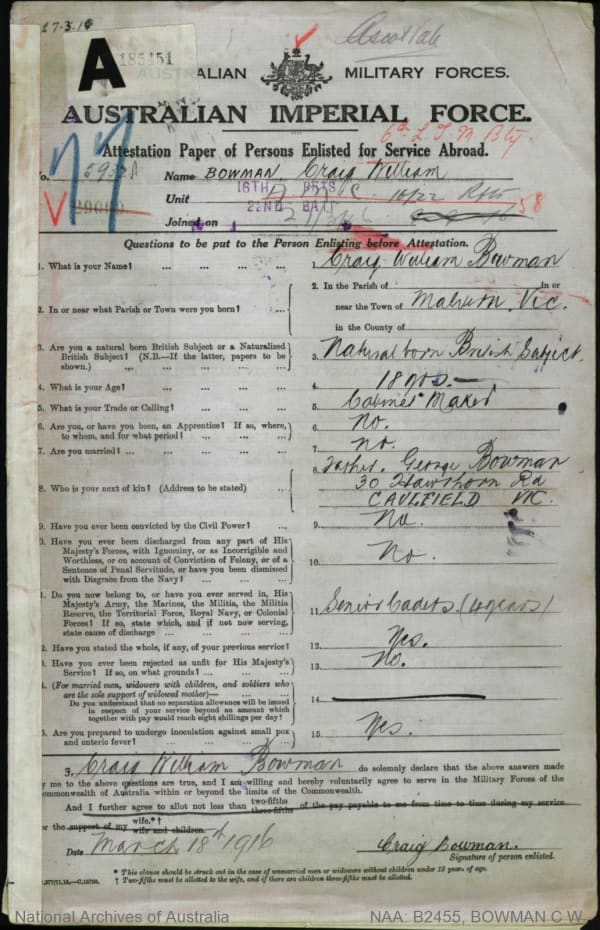 27.3.16
Ascot Vale
A
185151
ALIAN MILITARY FORCES.
AUSTRALIAN IMPERIAL FORCE.
6th L.T.M. Bty
Attestation Paper of Persons Enlisted for Service Abroad.
77
o. 5932 Name BOWMAN, Craig William
Unit 16TH REPTS 22ND BATT 16/22 Rfts
V 29000 58
Joined on
Questions to be put to the Person Enlisting before Attestation.
1. What is your Name? ... ... ... ... 1. Craig William Bowman
2. In or near what Parish or Town were you born? ... 2. In the Parish of in or
near the Town of Malvern, Vic.
in the County of
3. Are you a natural born British Subject or a Naturalized
British Subject? (N.B.—If the latter, papers to be
shown.) ... ... ... ... 3. Natural born British Subject.
4. What is your Age? ... ... ... ... 4. 18 yrs.
5. What is your Trade or Calling? ... ... ... 5. Cabinet Maker
6. Are you, or have you been, an Apprentice? If so, where,
to whom, and for what period? ... ... ... 6. No.
7. Are you married? ... ... ... ... 7. No.
8. Who is your next of kin? (Address to be stated) ... 8. Father. George Bowman
30 Hawthorn Rd
CAULFIELD VIC.
9. Have you ever been convicted by the Civil Power? ... 9. No.
0. Have you ever been discharged from any part of His
Majesty's Forces, with Ignominy, or as Incorrigible and
Worthless, or on account of Conviction of Felony, or of a
Sentence of Penal Servitude, or have you been dismissed
with Disgrace from the Navy? ... ... ... 10. No.
1. Do you now belong to, or have you ever served in, His
Majesty's Army, the Marines, the Militia, the Militia
Reserve, the Territorial Force, Royal Navy, or Colonial
Forces? If so, state which, and if not now serving,
state cause of discharge ... ... ... 11. Senior Cadets (4 years)
2. Have you stated the whole, if any, of your previous service? 12. Yes.
3. Have you ever been rejected as unfit for His Majesty's
Service? If so, on what grounds? ... ... ... 13. No.
4. (For married men, widowers with children, and soldiers who
are the sole support of widowed mother)—
Do you understand that no separation allowance will be issued
in respect of your service beyond an amount which
together with pay would reach eight shillings per day? 14.
5. Are you prepared to undergo inoculation against small pox
and enteric fever? ... ... ... ... 15. Yes.
I, Craig William Bowman do solemnly declare that the above answers made
y me to the above questions are true, and I am willing and hereby voluntarily agree to serve in the Military Forces of the
ommonwealth of Australia within or beyond the limits of the Commonwealth.
And I further agree to allot not less than two-fifths three-fifths of the pay payable to me from time to time during my service
or the support of my wife.*† wife and children.
Date March 18th 1916 Craig Bowman.
Signature of person enlisted.
* This clause should be struck out in the case of unmarried men or widowers without children under 18 years of age.
† Two-fifths must be allotted to the wife, and if there are children three-fifths must be allotted.
National Archives of Australia NAA: B2455, BOWMAN C W